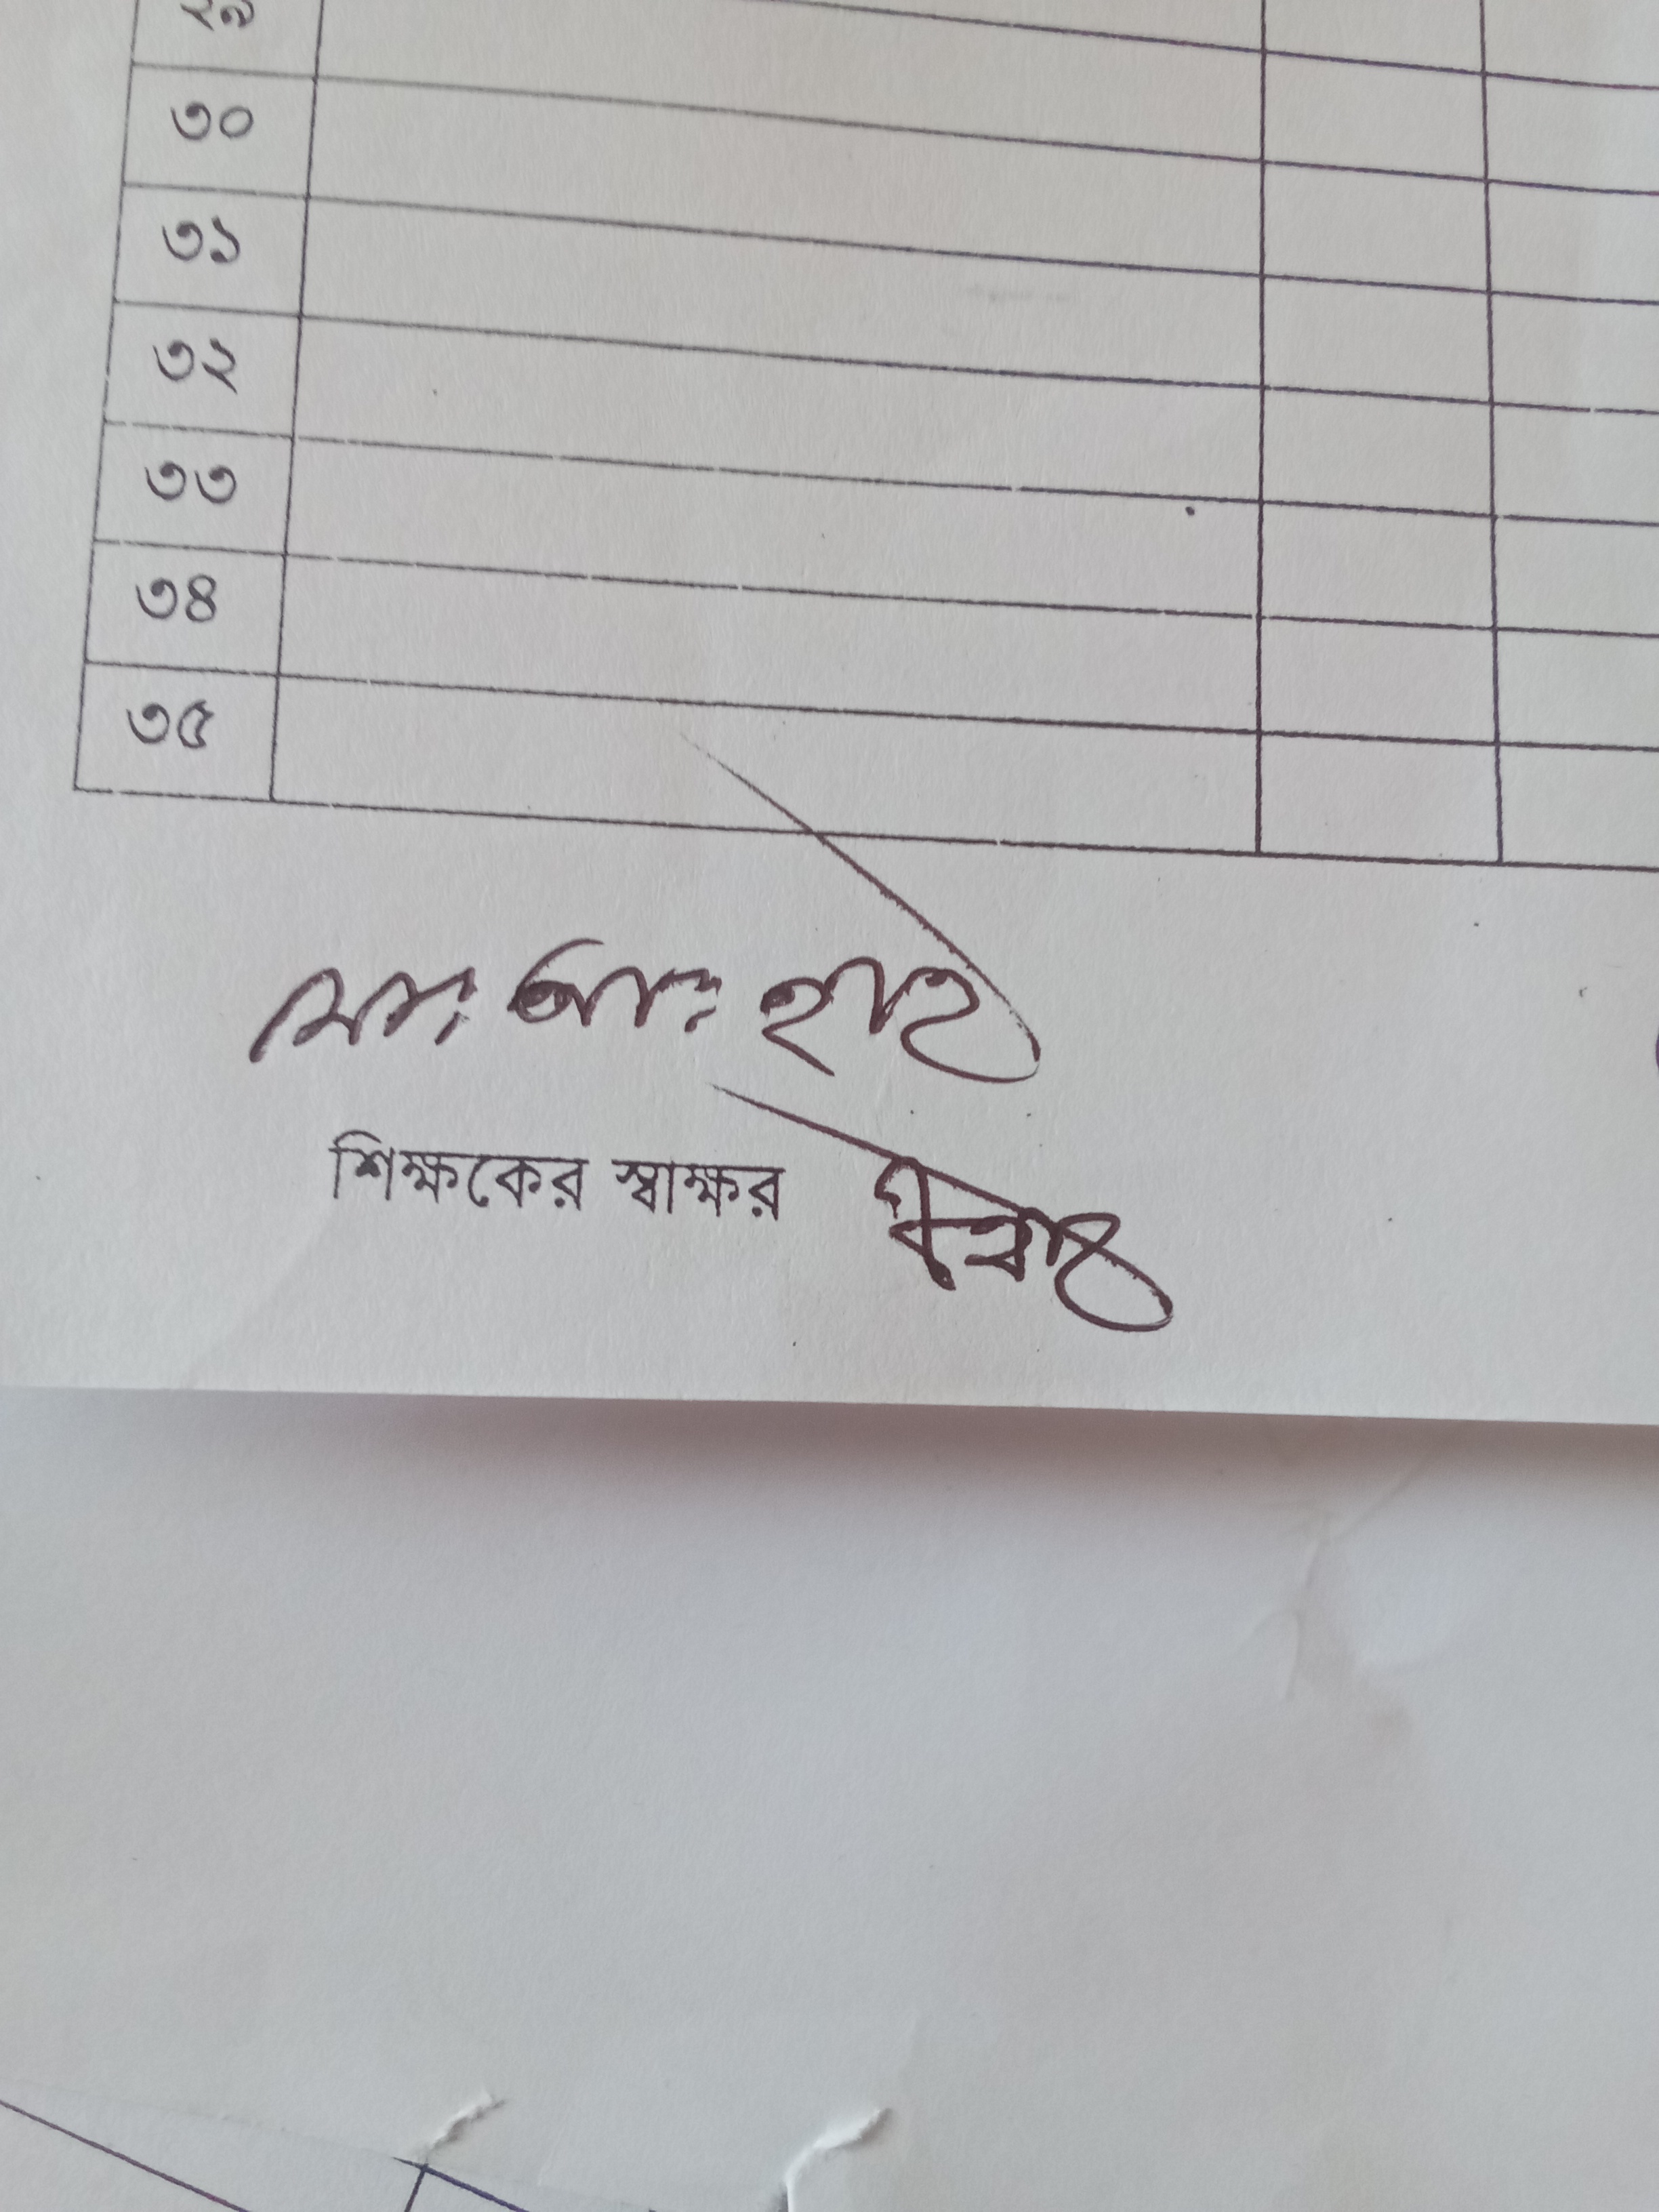 ২৯
৩০
৩১
৩২
৩৩
৩৪
৩৫
মোঃ আঃ হাই
শিক্ষকের স্বাক্ষর